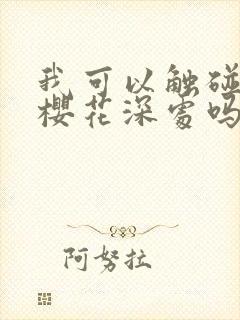 我可以触碰
樱花深处吗
阿努拉